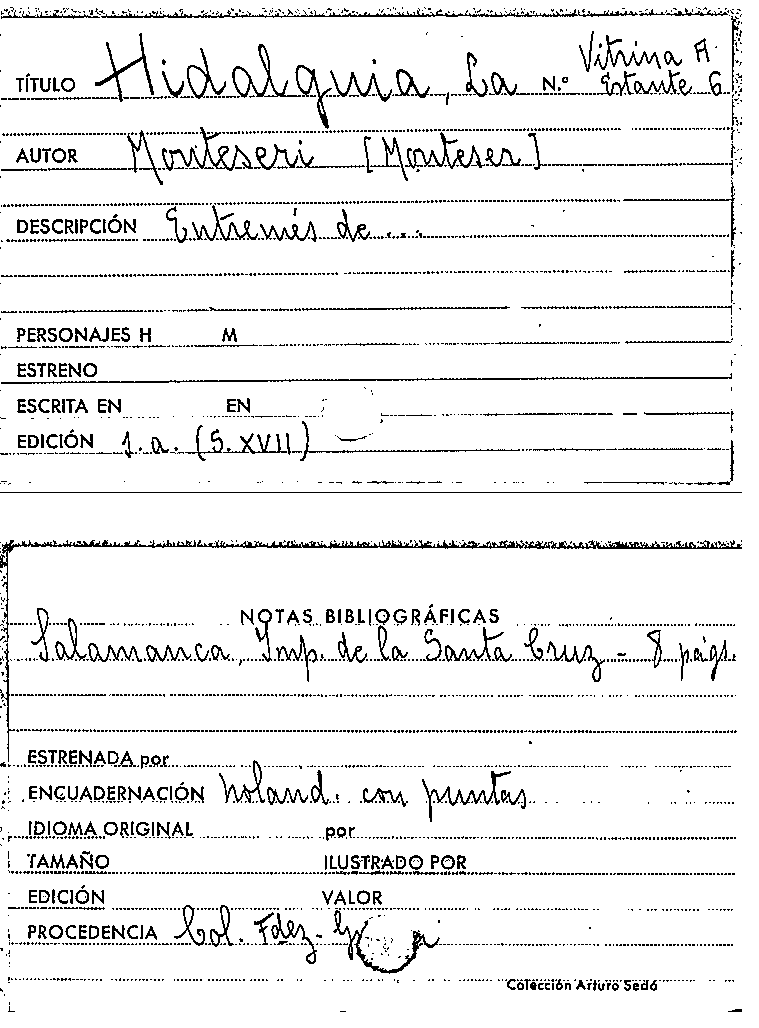 TÍTULO Hidalguia, La N.º Vitrina A
Estante 6
AUTOR Monteseri [Monteser]
DESCRIPCIÓN Entremés de ...
PERSONAJES H M
ESTRENO
ESCRITA EN EN
EDICIÓN s.a. (S. XVII)
NOTAS BIBLIOGRÁFICAS
Salamanca, Imp. de la Santa Cruz - 8 págs.
ESTRENADA por
ENCUADERNACIÓN holand. con puntas
IDIOMA ORIGINAL por
TAMAÑO ILUSTRADO POR
EDICIÓN VALOR
PROCEDENCIA Col. Fdez-
Colección Arturo Sedó